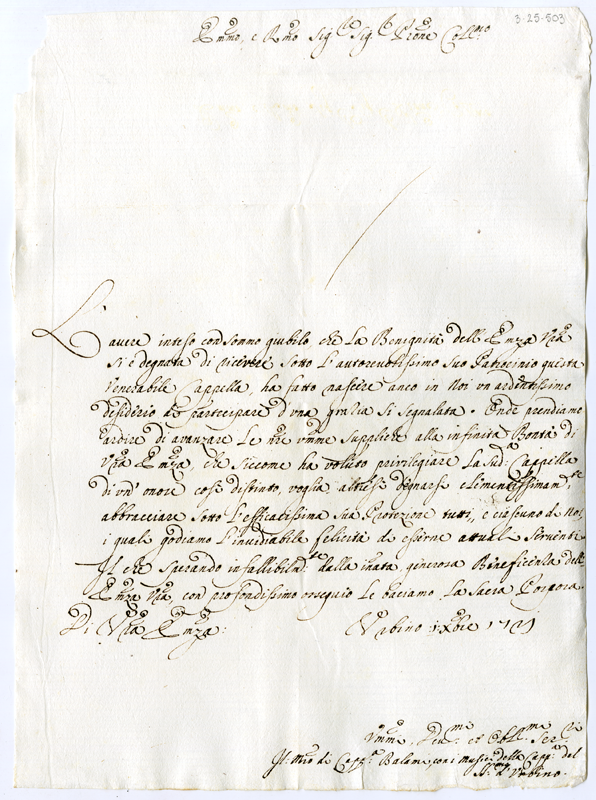 3-25-503
Emmo, e Rmo Sig.re Sig.r Prone Coll.mo
L'avere inteso con sommo giubilo, che la Benignità dell'Emza Vra
si è degnata di ricevere sotto l'autorevolissimo suo Patrocinio questa
Venerabile Cappella, ha fatto nascere anco in Noi un ardentissimo
desiderio di partecipare d'una grazia si segnalata. Onde prendiamo
ardire di avanzare le nre umme suppliche alla infinita Bontà di
Vra Emza, che siccome ha voluto privilegiare la sud.a Cappella
di un' onore così distinto, voglia altresì degnarsi clementissimam.te
abbracciare sotto l'efficacissima sua Protezione tutti, e ciascuno di Noi,
i quali godiamo l'invidiabile felicità di esserne attuali serventi.
Il che sperando infallibilm.te dalla innata, generosa Beneficenza dell'
Emza Vra, con profondissimo ossequio le baciamo la Sacra Porpora.
Di Vra Emza:
Urbino Xbre 1721
Ummi, Dev.mi et Obb.mi Ser.ri
Il Mro di Capp.a Balami, con i musici della Capp.a del
SS. d'Urbino.